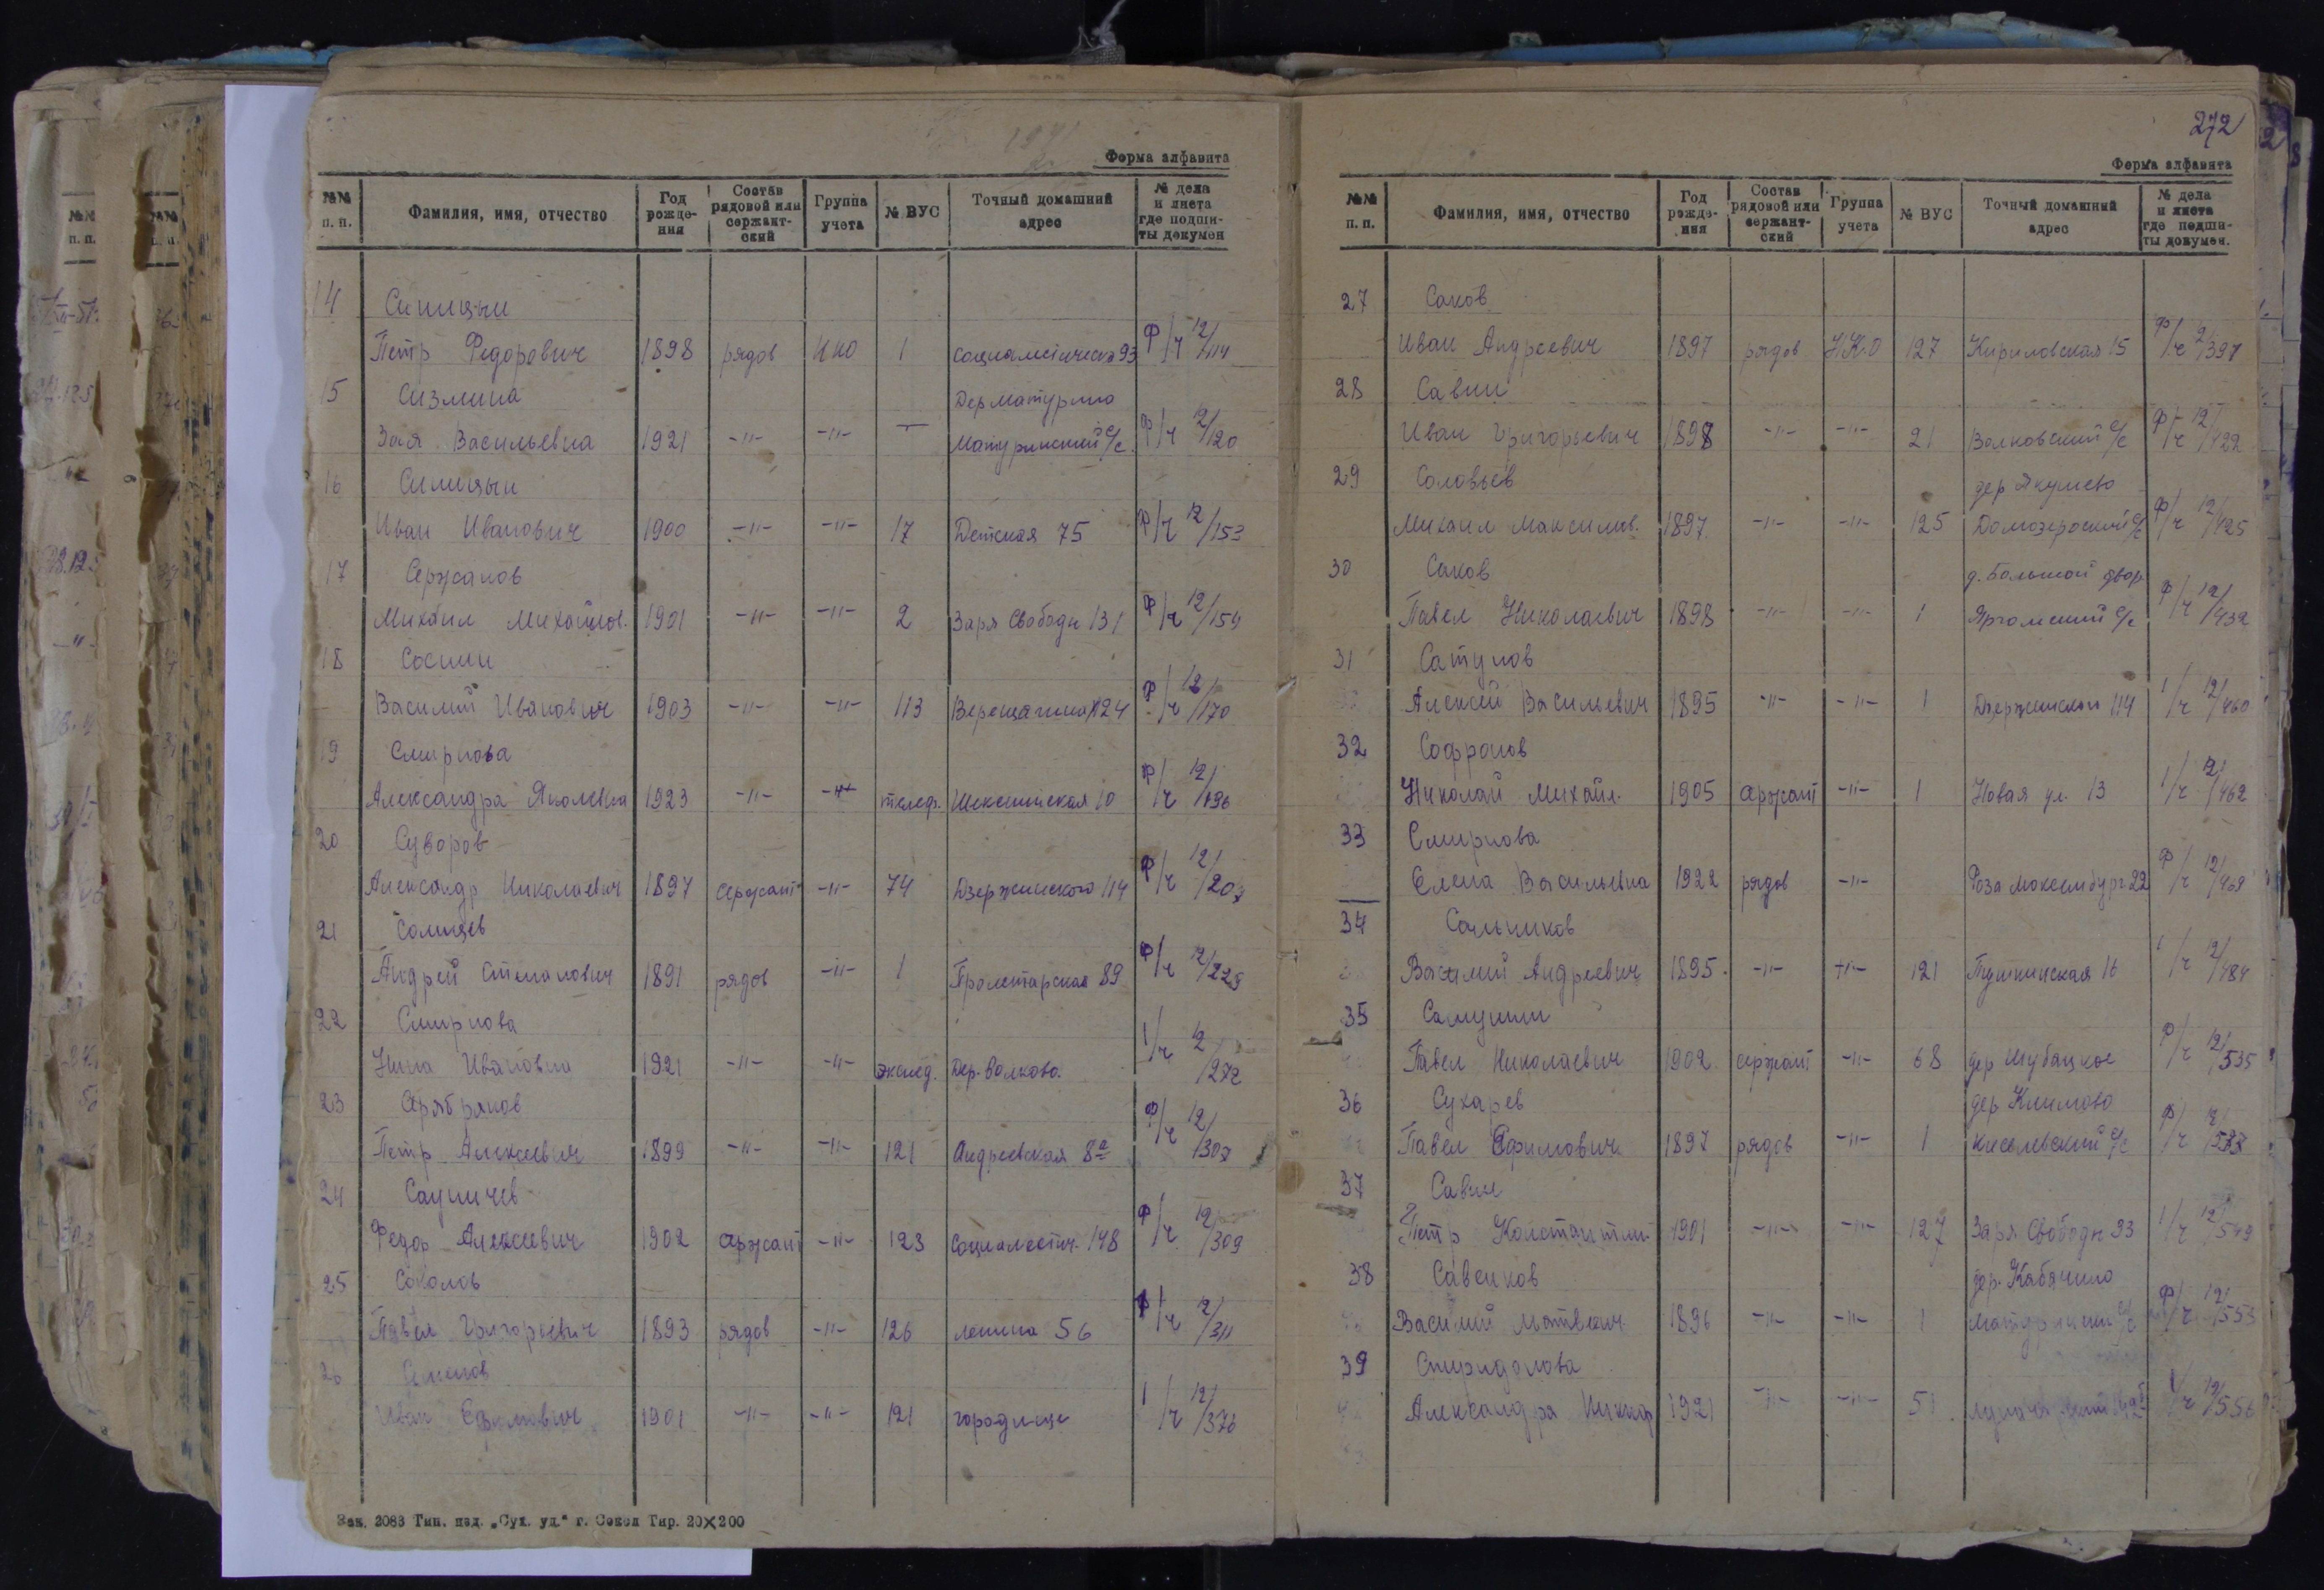 Форма алфавита
№№ п. п. Фамилия, имя, отчество Год рожде-ния Состав рядовой или сержант-ский Группа учета № ВУС Точный домашний адрес № дела и листа где подши-ты докумен
14 Синицын
Петр Федорович 1898 рядов НКО 1 93 ф/ч 12/114
15 Сизмина Дер Матурино
Зоя Васильевна 1921 -"- -"- — Матуринский с/с ф/ч 12/120
16 Синицын
Иван Иванович 1900 -"- -"- 17 Детская 75 ф/ч 12/153
17 Сержанов
Михаил Михайлов. 1901 -"- -"- 2 Заря Свободы 131 ф/ч 12/154
18 Соснин
Василий Иванович 1903 -"- -"- 113 Верещагина 24 ф/ч 12/170
19 Смирнова
Александра Яковлевна 1923 -"- -"- телеф. Шекснинская 10 ф/ч 12/196
20 Суворов
Александр Николаевич 1897 сержант -"- 74 Дзержинского 114 ф/ч 12/207
21 Солнцев
Андрей Степанович 1891 рядов -"- 1 Пролетарская 89 ф/ч 12/229
22 Смирнова
Нина Ивановна 1921 -"- -"- экспед. Дер. Волково. 1/ч 12/272
23 Серебряков
Петр Алексеевич 1899 -"- -"- 121 Андреевская 8а ф/ч 12/307
24 Сауничев
Федор Алексеевич 1902 сержант -"- 123 Социалистич. 148 ф/ч 12/309
25 Соколов
Павел Григорьевич 1893 рядов -"- 126 Ленина 56 ф/ч 12/311
26
Иван Ефимович 1901 -"- -"- 121 городище 1/ч 12/376
Зак. 2083 Тип. изд. „Сух. уд.“ г. Сокол Тир. 20×200
272
Форма алфавита
№№ п. п. Фамилия, имя, отчество Год рожде-ния Состав рядовой или сержант-ский Группа учета № ВУС Точный домашний адрес № дела и листа где подши-ты докумен.
27 Саков
Иван Андреевич 1897 рядов Н.К.О 127 Кириловская 15 ф/ч 12/397
28 Савин
Иван Григорьевич 1898 -"- -"- 21 Волковский с/с ф/ч 12/422
29 Соловьев дер Якунево
Михаил Максимов. 1897 -"- -"- 125 Домозерский с/с ф/ч 12/425
30 Саков д. Большой двор
Павел Николаевич 1898 -"- -"- 1 Яргомский с/с ф/ч 12/432
31 Сатунов
Алексей Васильевич 1895 -"- -"- 1 Дзержинского 114 1/ч 12/460
32 Софронов
Николай Михайл. 1905 сержант -"- 1 Новая ул. 13 1/ч 12/462
33 Смирнова
Елена Васильевна 1922 рядов -"- Роза Люксембург 22 ф/ч 12/469
34 Сальников
Василий Андреевич 1895. -"- -"- 121 Пушкинская 16 1/ч 12/484
35 Самунин
Павел Николаевич 1902 сержант -"- 68 дер Шубацкое ф/ч 12/535
36 Сухарев дер Климово
Павел Ефимович 1897 рядов -"- 1 Киселевский с/с ф/ч
37 Савин
Петр Константин. 1901 -"- -"- 127 Заря Свободы 93 1/ч 12/549
38 Савенков дер. Кабачино
Василий Матвеевич 1896 -"- -"- 1 Матуринский с/с ф/ч 12/553
39 Спиридонова
Александра 1921 -"- -"- 51 12/556